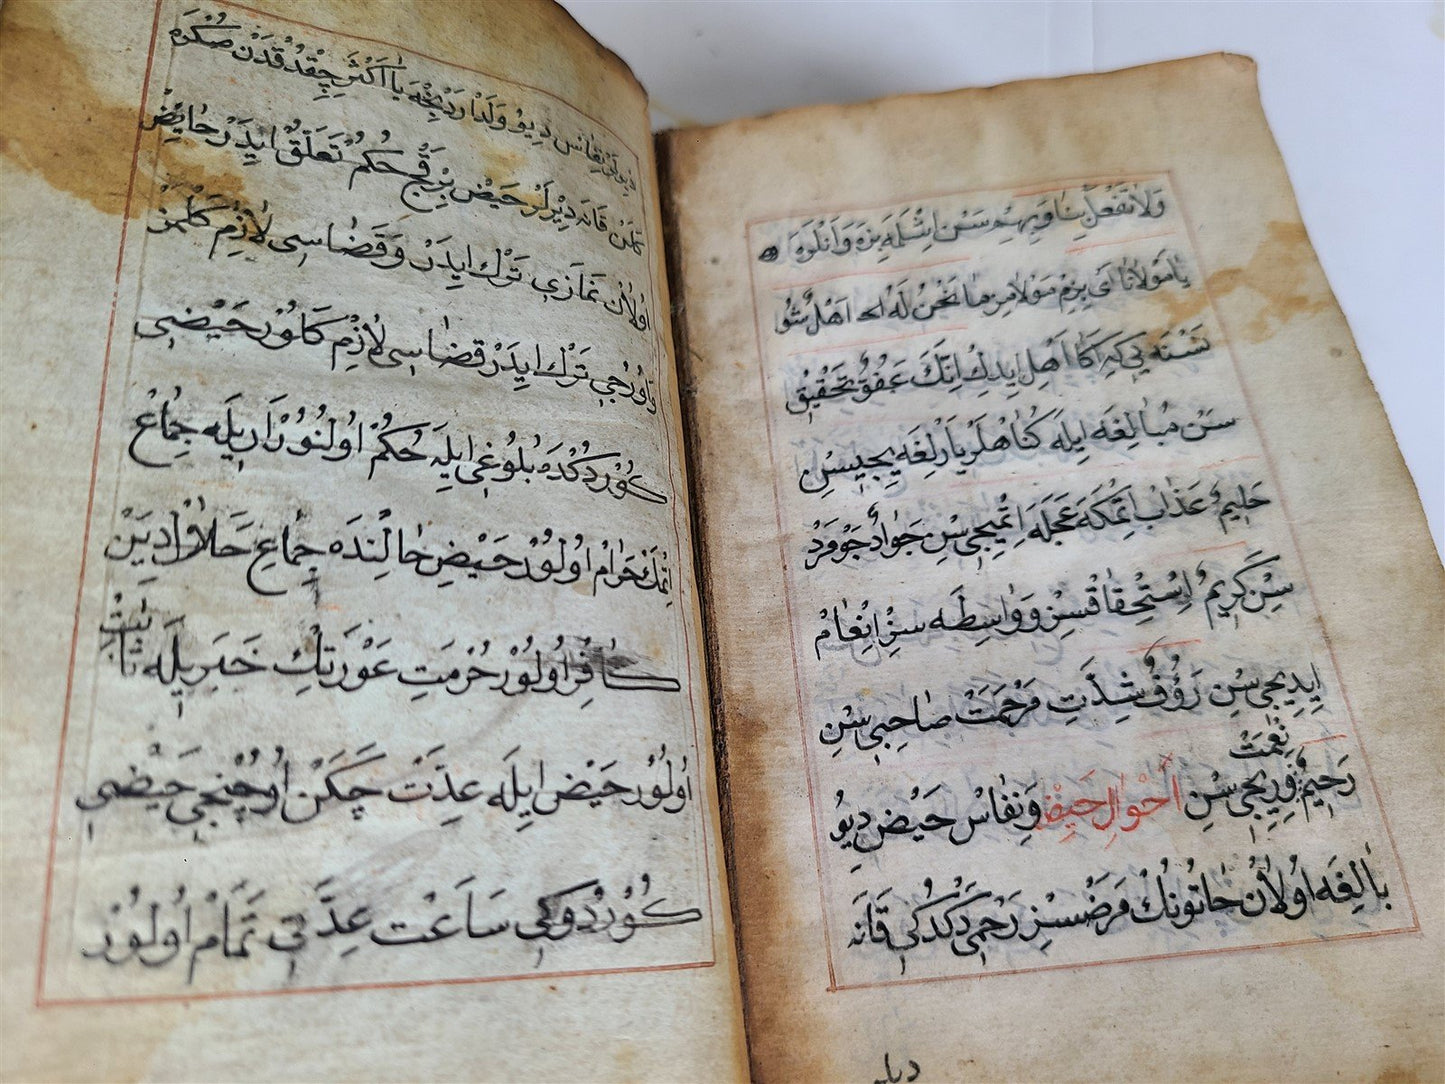 وَلَا تَفْعَلْ بِنَا وَبِهِمْ سَنْ اِشْلَمَه بِزَه وَ اَنْلَرَه
يَا مَوْلَانَا اَىْ بِزِمْ مَوْلَامِز مَا نَحْنُ لَهُ اَهْلٌ شُو
نَسْنَه يِى كِه اَكَا اَهْل اِيدِكْ اِنَّكَ عَفُوٌّ تَحْقِيقْ
سَنْ مُبَالِغَه اِيلَه كُنَاهْلَرِ يَارْلِغَه يِجِيسِنْ
حَلِيمٌ عَذَابْ اِتْمَكَه عَجَلَه اِتْمَيِجِى سِنْ جَوَادٌ جَوْمَرْدْ
سِنْ كَرِيمٌ اِسْتِحْقَاقْسِزْ وَ وَاسِطَه سِزْ اِنْعَامْ
اِيدِيجِى سِنْ رَؤُفٌ شِدَّتِ مَرْحَمَتْ صَاحِبِى سِنْ
نِعْمَتْ
رَحِيمٌ وِيرِيجِى سِنْ اَحْوَالِ حَيض وَنِفَاسْ حَيْض دِيُو
بَالِغَه اُولَانْ خَاتُونُكْ مَرَضْسِزْ رَحْمِى دَكُدَكِى قَانَه
دیلر
نِفَاسْ دِيُو وَلَد يَا اَكْثَرِ چِقْدُقْدَنْ صُكْرَه
كَلَنْ قَانَه دِيْرلَرْ حَيْض بِرْقَچْ حُكْم تَعَلُّقْ اِيدَرْ حَايِض
اُولَانْ نَمَازِى تَرْك اِيدَرْ وَقَضَاسِى لَازِمْ كَلْمَزْ
وَاوُرُجِى تَرْك اِيدَرْ قَضَاسِى لَازِمْ كَلُورْ حَيْضِى
كُوْرْدُكْدَه بُلُوغِى اِيلَه حُكْمْ اُولُنُورْ اَرِيلَه جِمَاعْ
اِتْمَكْ حَرَامْ اُولُورْ حَيْضِ حَالِنْدَه جِمَاعِ حَلَالْدِرْ دِيَنْ
كَافِرْ اُولُورْ حُرْمَتِ عَوْرَتِكْ خَبَرِيلَه ثَابِتْ
اُولُورْ حَيْض اِيلَه عِدَّتْ چَكَنْ اُوچُنْجِى حَيْضِى
كُوْرْدُوكِى سَاعَتْ عِدَّتِى تَمَامْ اُولُورْ